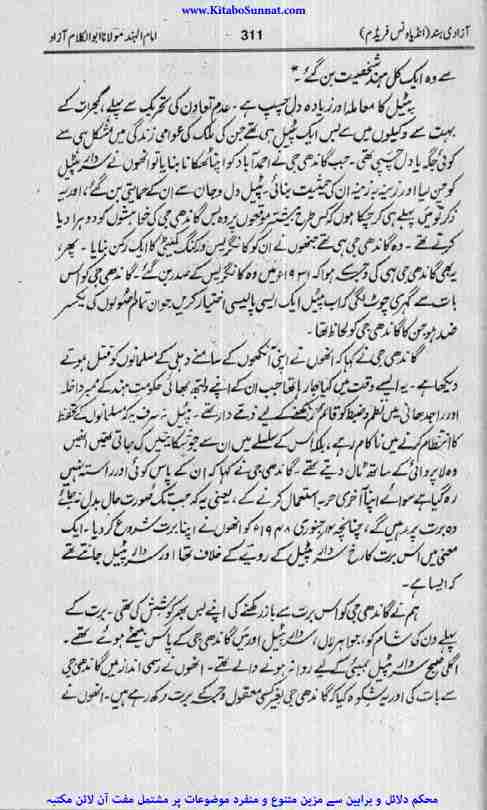 www.KitaboSunnat.com
آزادی ہند (انڈیا ونس فریڈم) 311 امام الہند مولانا ابوالکلام آزاد
سے وہ ایک کل ہند شخصیت بن گئے۔"
پٹیل کا معاملہ اور زیادہ دل چسپ ہے۔ عدم تعاون کی تحریک سے پہلے، گجرات کے
بہت سے وکیلوں میں سے بس ایک پٹیل بھی تھے جن کی ملک کی عوامی زندگی میں مشکل ہی سے
کوئی جگہ یا دل چسپی تھی۔ جب گاندھی جی نے احمد آباد کو اپنا ٹھکانا بنایا تو انھوں نے سردار پٹیل
کو چن لیا اور زینہ بہ زینہ ان کی حیثیت بنائی۔ پٹیل دل و جان سے ان کے حمایتی بن گئے، اور یہ
ذکر تو میں پہلے ہی کر چکا ہوں کہ کس طرح بیشتر موقعوں پر وہ بس گاندھی جی کی خواہشوں کو دوہرا دیا
کرتے تھے۔ وہ گاندھی جی ہی تھے جنھوں نے ان کو کانگریس ورکنگ کمیٹی کا ایک رکن بنایا۔ پھر،
یہ بھی گاندھی جی ہی کی وجہ سے ہوا کہ ۱۹۳۱ء میں وہ کانگریس کے صدر بن گئے۔ گاندھی جی کو اس
بات سے گہری چوٹ لگی کہ اب پٹیل ایک ایسی پالیسی اختیار کریں جو ان تمام اصولوں کی یکسر
ضد ہو جن کا گاندھی جی کو لحاظ تھا۔
گاندھی جی نے کہا کہ انھوں نے اپنی آنکھوں کے سامنے دہلی کے مسلمانوں کو قتل ہوتے
دیکھا ہے۔ یہ ایسے وقت میں کیا جا رہا تھا جب ان کے اپنے ولبھ بھائی حکومت ہند کے ممبر داخلہ
اور راجدھانی میں نظم و ضبط کو قائم رکھنے کے لیے ذمے دار تھے۔ پٹیل نہ صرف یہ کہ مسلمانوں کے تحفظ
کا انتظام کرنے میں ناکام رہے، بلکہ اس کے سلسلے میں ان سے جو شکایتیں کی جاتی تھیں انھیں
وہ لاپروائی کے ساتھ ٹال دیتے تھے۔ گاندھی جی نے کہا کہ ان کے پاس کوئی اور راستہ نہیں
رہ گیا ہے سوائے اپنا آخری حربہ استعمال کرنے کے، یعنی یہ کہ جب تک صورت حال بدل نہ جائے
وہ برت پر رہیں گے، چنانچہ ۱۲ جنوری ۱۹۴۸ء کو انھوں نے اپنا برت شروع کر دیا۔ ایک
معنی میں اس برت کا رخ سردار پٹیل کے رویے کے خلاف تھا اور سردار پٹیل جانتے تھے
کہ ایسا ہے۔
ہم نے گاندھی جی کو اس برت سے باز رکھنے کی اپنے بس بھر کوشش کی تھی۔ برت کے
پہلے دن کی شام کو، جواہر لال، سردار پٹیل اور میں گاندھی جی کے پاس بیٹھے ہوئے تھے۔
اگلی صبح سردار پٹیل بمبئی کے لیے روانہ ہونے والے تھے۔ انھوں نے رسمی انداز میں گاندھی جی
سے بات کی اور یہ شکوہ کیا کہ گاندھی جی بغیر کسی معقول وجہ کے برت رکھ رہے ہیں۔ انھوں نے
محکم دلائل و براہین سے مزین متنوع و منفرد موضوعات پر مشتمل مفت آن لائن مکتبہ